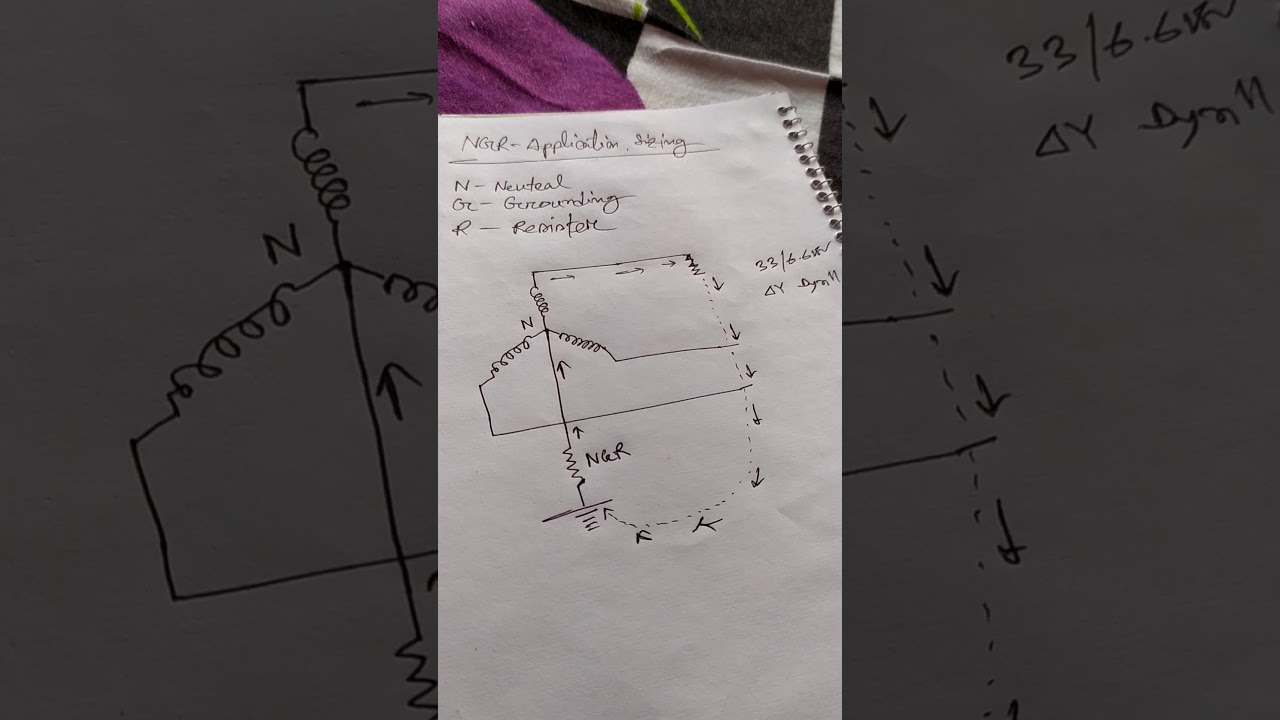 NGR - Application, Sizing
N - Neutral
G - Grounding
R - Resistor
33/6.6kV
ΔY Dyn11
N
NGR
33/6.6kV
ΔY Dyn11
N